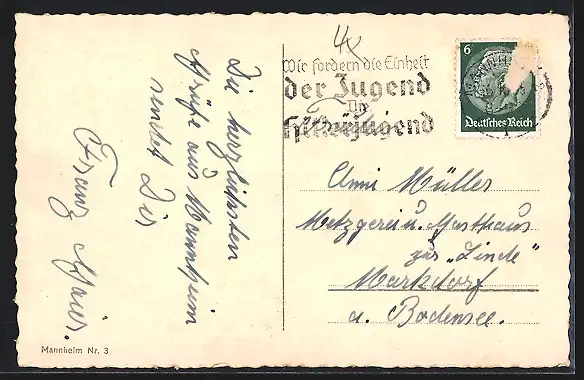 Die herzlichsten
Grüße aus Mannheim
sendet Dir
Franz Maier.
Mannheim Nr. 3
4x
Wir fordern die Einheit
der Jugend
in der
Hitlerjugend
6
Deutsches Reich
Anni Müller
Metzgerei u. Gasthaus
zur „Linde"
Markdorf
a. Bodensee.